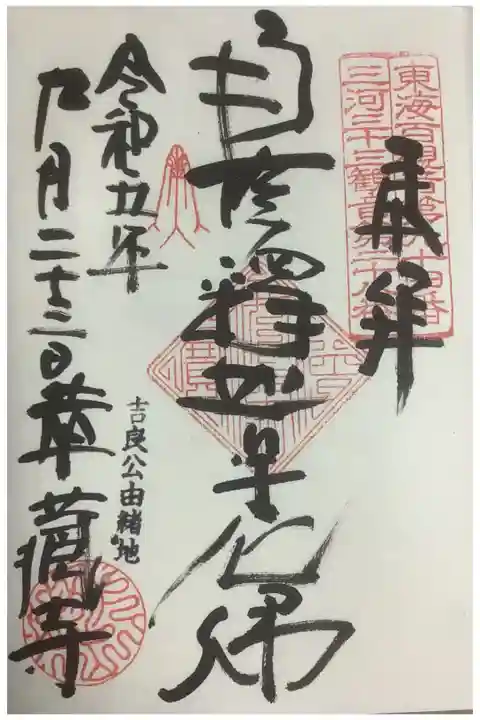 東海百観音第九十四番
三河三十三観音第二十八番
奉拝
南無釋迦牟尼佛
令和五年
九月二十三日
吉良公由緒地
華蔵寺